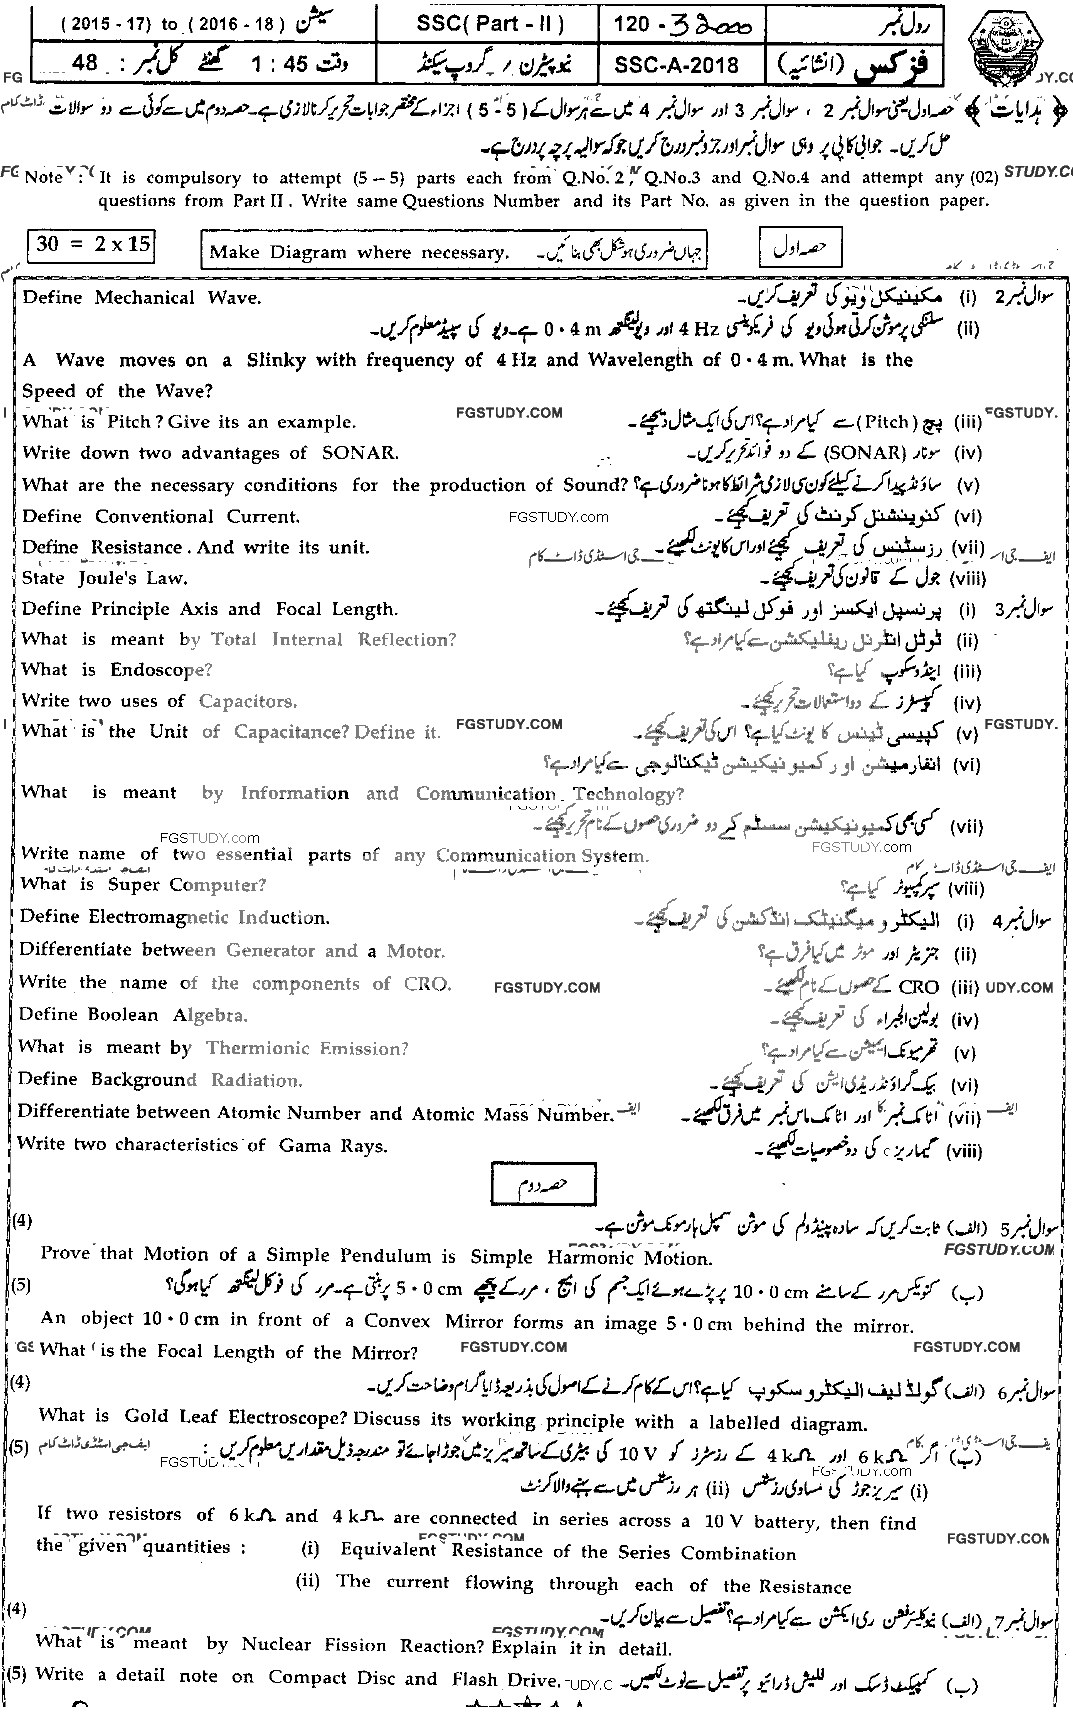 (2015 - 17) to (2016 - 18) سیشن SSC( Part - II ) 120 - 32000 رول نمبر
48 : کل نمبر 1 : 45 گھنٹے وقت نیوپیٹرن / گروپ سیکنڈ SSC-A-2018 فزکس (انشائیہ)
﴿ ہدایات ﴾ حصہ اول یعنی سوال نمبر 2 ، سوال نمبر 3 اور سوال نمبر 4 میں سے ہر سوال کے (5 - 5) اجزاء کے مختصر جوابات تحریر کرنا لازمی ہے۔ حصہ دوم میں سے کوئی سے دو سوالات
حل کریں۔ جوابی کاپی پر وہی سوال نمبر اور جزو نمبر درج کریں جو کہ سوالیہ پرچہ پر درج ہے۔
Note : It is compulsory to attempt (5 – 5) parts each from Q.No. 2, Q.No.3 and Q.No.4 and attempt any (02)
STUDY.CO
questions from Part II. Write same Questions Number and its Part No. as given in the question paper.
30 = 2 x 15 Make Diagram where necessary. جہاں ضروری ہو شکل بھی بنائیں۔ حصہ اول
Define Mechanical Wave. سوال نمبر 2 (i) مکینیکل ویو کی تعریف کریں۔
(ii) سلنکی پر موشن کرتی ہوئی ویو کی فریکوئنسی 4 Hz اور ویولینگتھ 0·4 m ہے۔ ویو کی سپیڈ معلوم کریں۔
A Wave moves on a Slinky with frequency of 4 Hz and Wavelength of 0·4 m. What is the
Speed of the Wave?
What is Pitch? Give its an example. FGSTUDY.COM (iii) پچ (Pitch) سے کیا مراد ہے؟ اس کی ایک مثال دیجئے۔ FGSTUDY.
Write down two advantages of SONAR. (iv) سونار (SONAR) کے دو فوائد تحریر کریں۔
What are the necessary conditions for the production of Sound? (v) ساؤنڈ پیدا کرنے کیلئے کون سی لازمی شرائط کا ہونا ضروری ہے؟
Define Conventional Current. FGSTUDY.com (vi) کنوینشنل کرنٹ کی تعریف کیجئے۔
Define Resistance. And write its unit. (vii) رزسٹنس کی تعریف کیجئے اور اس کا یونٹ لکھیئے۔
ایف جی اسٹڈی ڈاٹ کام
State Joule's Law. (viii) جول کے قانون کی تعریف کیجئے۔
Define Principle Axis and Focal Length. سوال نمبر 3 (i) پرنسپل ایکسز اور فوکل لینگتھ کی تعریف کیجئے۔
What is meant by Total Internal Reflection? (ii) ٹوٹل انٹرنل ریفلیکشن سے کیا مراد ہے؟
What is Endoscope? (iii) اینڈوسکوپ کیا ہے؟
Write two uses of Capacitors. (iv) کپیسٹرز کے دو استعمالات تحریر کیجئے۔
What is the Unit of Capacitance? Define it. FGSTUDY.COM (v) کپیسی ٹینس کا یونٹ کیا ہے؟ اس کی تعریف کیجئے۔ FGSTUDY.
(vi) انفارمیشن اور کمیونیکیشن ٹیکنالوجی سے کیا مراد ہے؟
What is meant by Information and Communication Technology?
(vii) کسی بھی کمیونیکیشن سسٹم کے دو ضروری حصوں کے نام تحریر کیجئے۔
FGSTUDY.com FGSTUDY.com
Write name of two essential parts of any Communication System.
What is Super Computer? (viii) سپر کمپیوٹر کیا ہے؟
Define Electromagnetic Induction. سوال نمبر 4 (i) الیکٹرو میگنیٹک انڈکشن کی تعریف کیجئے۔
Differentiate between Generator and a Motor. (ii) جنریٹر اور موٹر میں کیا فرق ہے؟
Write the name of the components of CRO. FGSTUDY.COM (iii) CRO کے حصوں کے نام لکھیئے۔ UDY.COM
Define Boolean Algebra. (iv) بولین الجبراء کی تعریف کیجئے۔
What is meant by Thermionic Emission? (v) تھرمیونک ایمیشن سے کیا مراد ہے؟
Define Background Radiation. (vi) بیک گراؤنڈ ریڈی ایشن کی تعریف کیجئے۔
Differentiate between Atomic Number and Atomic Mass Number. (vii) اٹامک نمبر اور اٹامک ماس نمبر میں فرق لکھیئے۔
Write two characteristics of Gama Rays. (viii) گیما ریز کی دو خصوصیات لکھیئے۔
حصہ دوم
(4) سوال نمبر 5 (الف) ثابت کریں کہ سادہ پینڈولم کی موشن سمپل ہارمونک موشن ہے۔
Prove that Motion of a Simple Pendulum is Simple Harmonic Motion. FGSTUDY.COM
(5) (ب) کنویکس مرر کے سامنے 10·0 cm پر پڑے ہوئے ایک جسم کی امیج ، مرر کے پیچھے 5·0 cm پر بنتی ہے۔ مرر کی فوکل لینگتھ کیا ہو گی؟
An object 10·0 cm in front of a Convex Mirror forms an image 5·0 cm behind the mirror.
What is the Focal Length of the Mirror? FGSTUDY.COM FGSTUDY.COM
(4) سوال نمبر 6 (الف) گولڈ لیف الیکٹروسکوپ کیا ہے؟ اس کے کام کرنے کے اصول کی بذریعہ ڈایاگرام وضاحت کریں۔
What is Gold Leaf Electroscope? Discuss its working principle with a labelled diagram.
(5) (ب) اگر 6 kΩ اور 4 kΩ کے رزسٹرز کو 10 V کی بیٹری کے ساتھ سیریز میں جوڑا جائے تو مندرجہ ذیل مقداریں معلوم کریں :
(i) سیریز جوڑ کی مساوی رزسٹنس (ii) ہر رزسٹنس میں سے بہنے والا کرنٹ
If two resistors of 6 kΩ and 4 kΩ are connected in series across a 10 V battery, then find
the given quantities : (i) Equivalent Resistance of the Series Combination
(ii) The current flowing through each of the Resistance
(4) سوال نمبر 7 (الف) نیوکلیئر فشن ری ایکشن سے کیا مراد ہے؟ تفصیل سے بیان کریں۔
What is meant by Nuclear Fission Reaction? Explain it in detail.
(5) Write a detail note on Compact Disc and Flash Drive. (ب) کمپیکٹ ڈسک اور فلیش ڈرائیو پر تفصیل سے نوٹ لکھیں۔